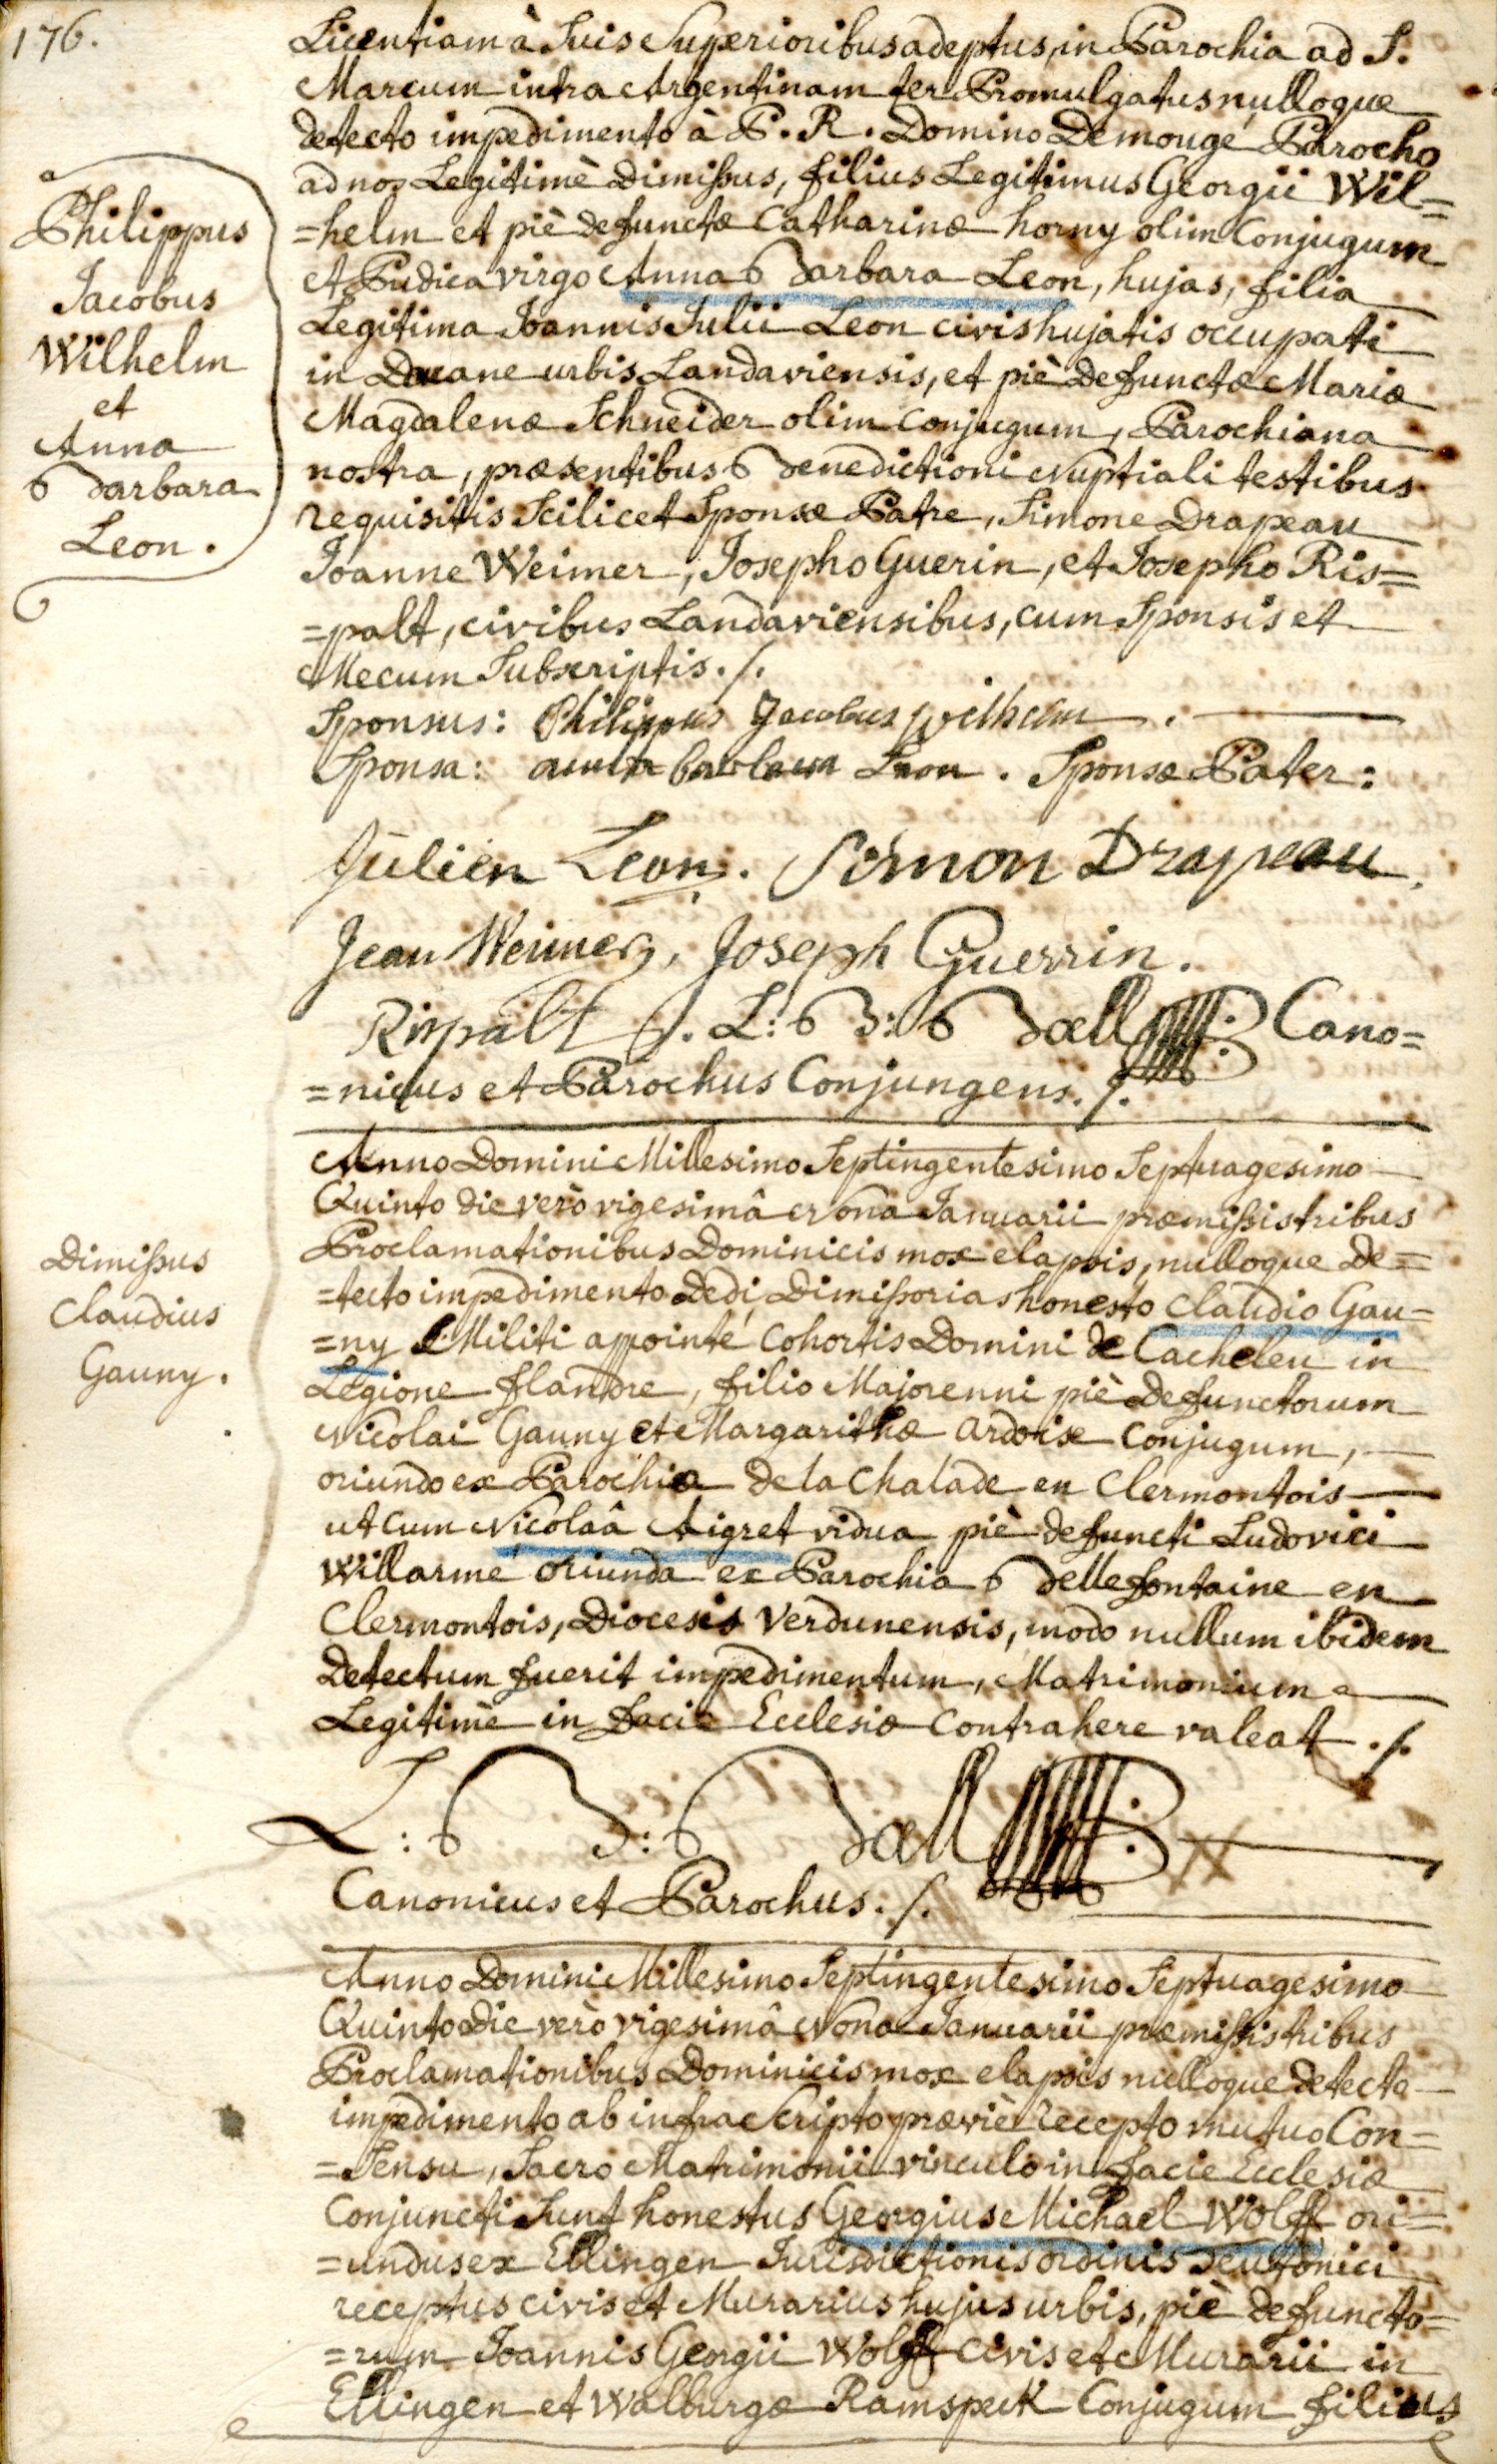 176.
Licentiam à Suis Superioribus adeptus, in Parochia ad S.
Marcum intra Argentinam ter Promulgatus nulloque
detecto impedimento à P. R. Domino Demougé Parocho
ad nos Legitimè Dimissus, filius Legitimus Georgii Wil=
=helm et piè defunctæ Catharinæ horny olim Conjugum
et Pudica virgo Anna Barbara Leon, hujas, filia
Legitima Joannis Julii Leon civis hujatis occupati
in Douane urbis Landaviensis, et piè Defunctæ Mariæ
Magdalenæ Schneider olim Conjugum, Parochiana
nostra, præsentibus Benedictioni Nuptiali testibus
requisitis Scilicet Sponsæ Patre, Simone Drapeau
Joanne Weimer, Josepho Guerin, et Josepho Ris=
=palt, civibus Landaviensibus, cum Sponsis et
Mecum Subscriptis ./.
Philippus
Jacobus
Wilhelm
et
Anna
Barbara
Leon.
Sponsus: Philippus Jacobus Wilhelm .
Sponsa: anna barbara Leon . Sponsæ Pater:
Julien Leon. Simon Drapeau.
Jean Weimer, Joseph Guerrin.
Rispalt ./. L: B: Bæll Cano=
=nicus et Parochus Conjungens ./.
Anno Domini Millesimo Septingentesimo Septuagesimo
Quinto die verò vigesimâ Nona Januarii præmissis tribus
Proclamationibus Dominicis mox elapsis, nulloque de=
=tecto impedimento Dedi Dimissorias honesto Claudio Gau=
=ny Militi appointé Cohortis Domini de Cacheleu in
Legione flandre, filio Majorenni piè Defunctorum
Nicolai Gauny et Margarithæ ardoise Conjugum,
oriundo ex Parochia de la Chalade en Clermontois
ut cum Nicolaâ Aigret vidua piè defuncti Ludovici
Willarmé oriunda ex Parochia Bellefontaine en
Clermontois, Diocesis Verdunensis, modo nullum ibidem
Detectum fuerit impedimentum, Matrimonium
Legitimè in facie Ecclesiæ Contrahere valeat ./.
Dimissus
Claudius
Gauny.
L: B: Bæll
Canonicus et Parochus ./.
Anno Domini Millesimo Septingentesimo Septuagesimo
Quinto die verò vigesimâ Nona Januarii præmissis tribus
Proclamationibus Dominicis mox elapsis nulloque detecto
impedimento ab infra Scripto præviè recepto mutuo Con=
=Sensu, Sacro Matrimonii vinculo in facie Ecclesiæ
Conjuncti Sunt honestus Georgius Michael Wolff ori=
=undus ex Ellingen Jurisdictionis ordinis Deutonici
receptus civis et Murarius hujus urbis, piè defuncto=
=rum Joannis Georgii Wolff Civis et Murarii in
Ellingen et Walburgæ Ramspeck Conjugum filius